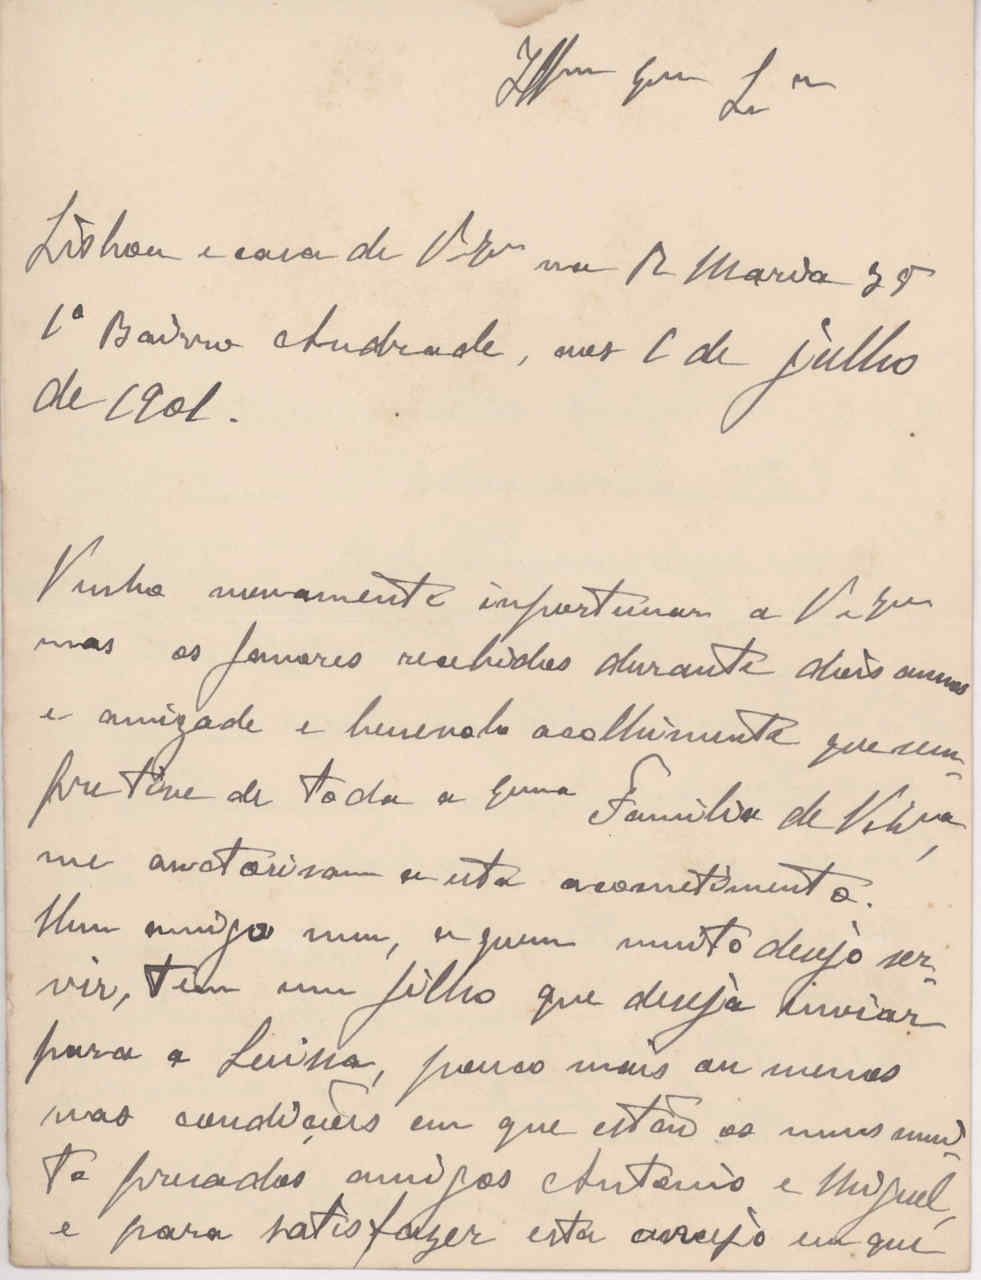 Illmo Exmo Snr
Lisboa e casa de V. Exa na R Maria 38
1º Bairro Andrade, aos 1 de julho
de 1901.
Venho novamente importunar a V. Exa
mas os favores recebidos durante dois annos
e amizade e benevolo acolhimento que sem-
pre tive de toda a Exma Familia de V. Exa,
me auctorisam a esta acomettimento.
Um amigo meu, a quem muito desejo ser-
vir, tem um filho que deseja inviar
para a Suissa, pouco mais ou menos
nas condições em que estão os meus mui-
to presados amigos Antonio e Miguel,
e para satisfazer esta em que